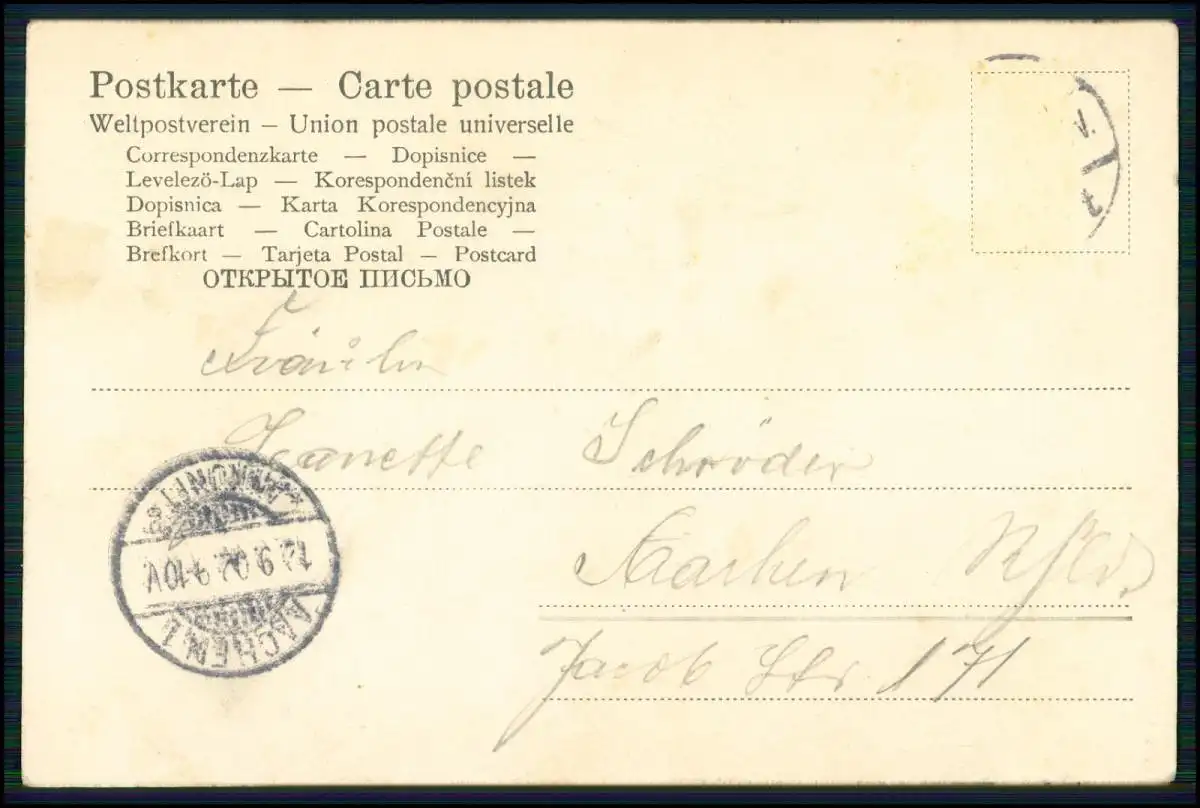 Postkarte — Carte postale
Weltpostverein – Union postale universelle
Correspondenzkarte — Dopisnice —
Levelezö-Lap — Korespondenční listek
Dopisnica — Karta Korespondencyjna
Briefkaart — Cartolina Postale —
Brefkort — Tarjeta Postal — Postcard
ОТКРЫТОЕ ПИСЬМО
V.
t
Fräulein
Jeanette Schröder
Aachen
Jacob Str 171
ANKUNFT
9-10V
AACHEN 1